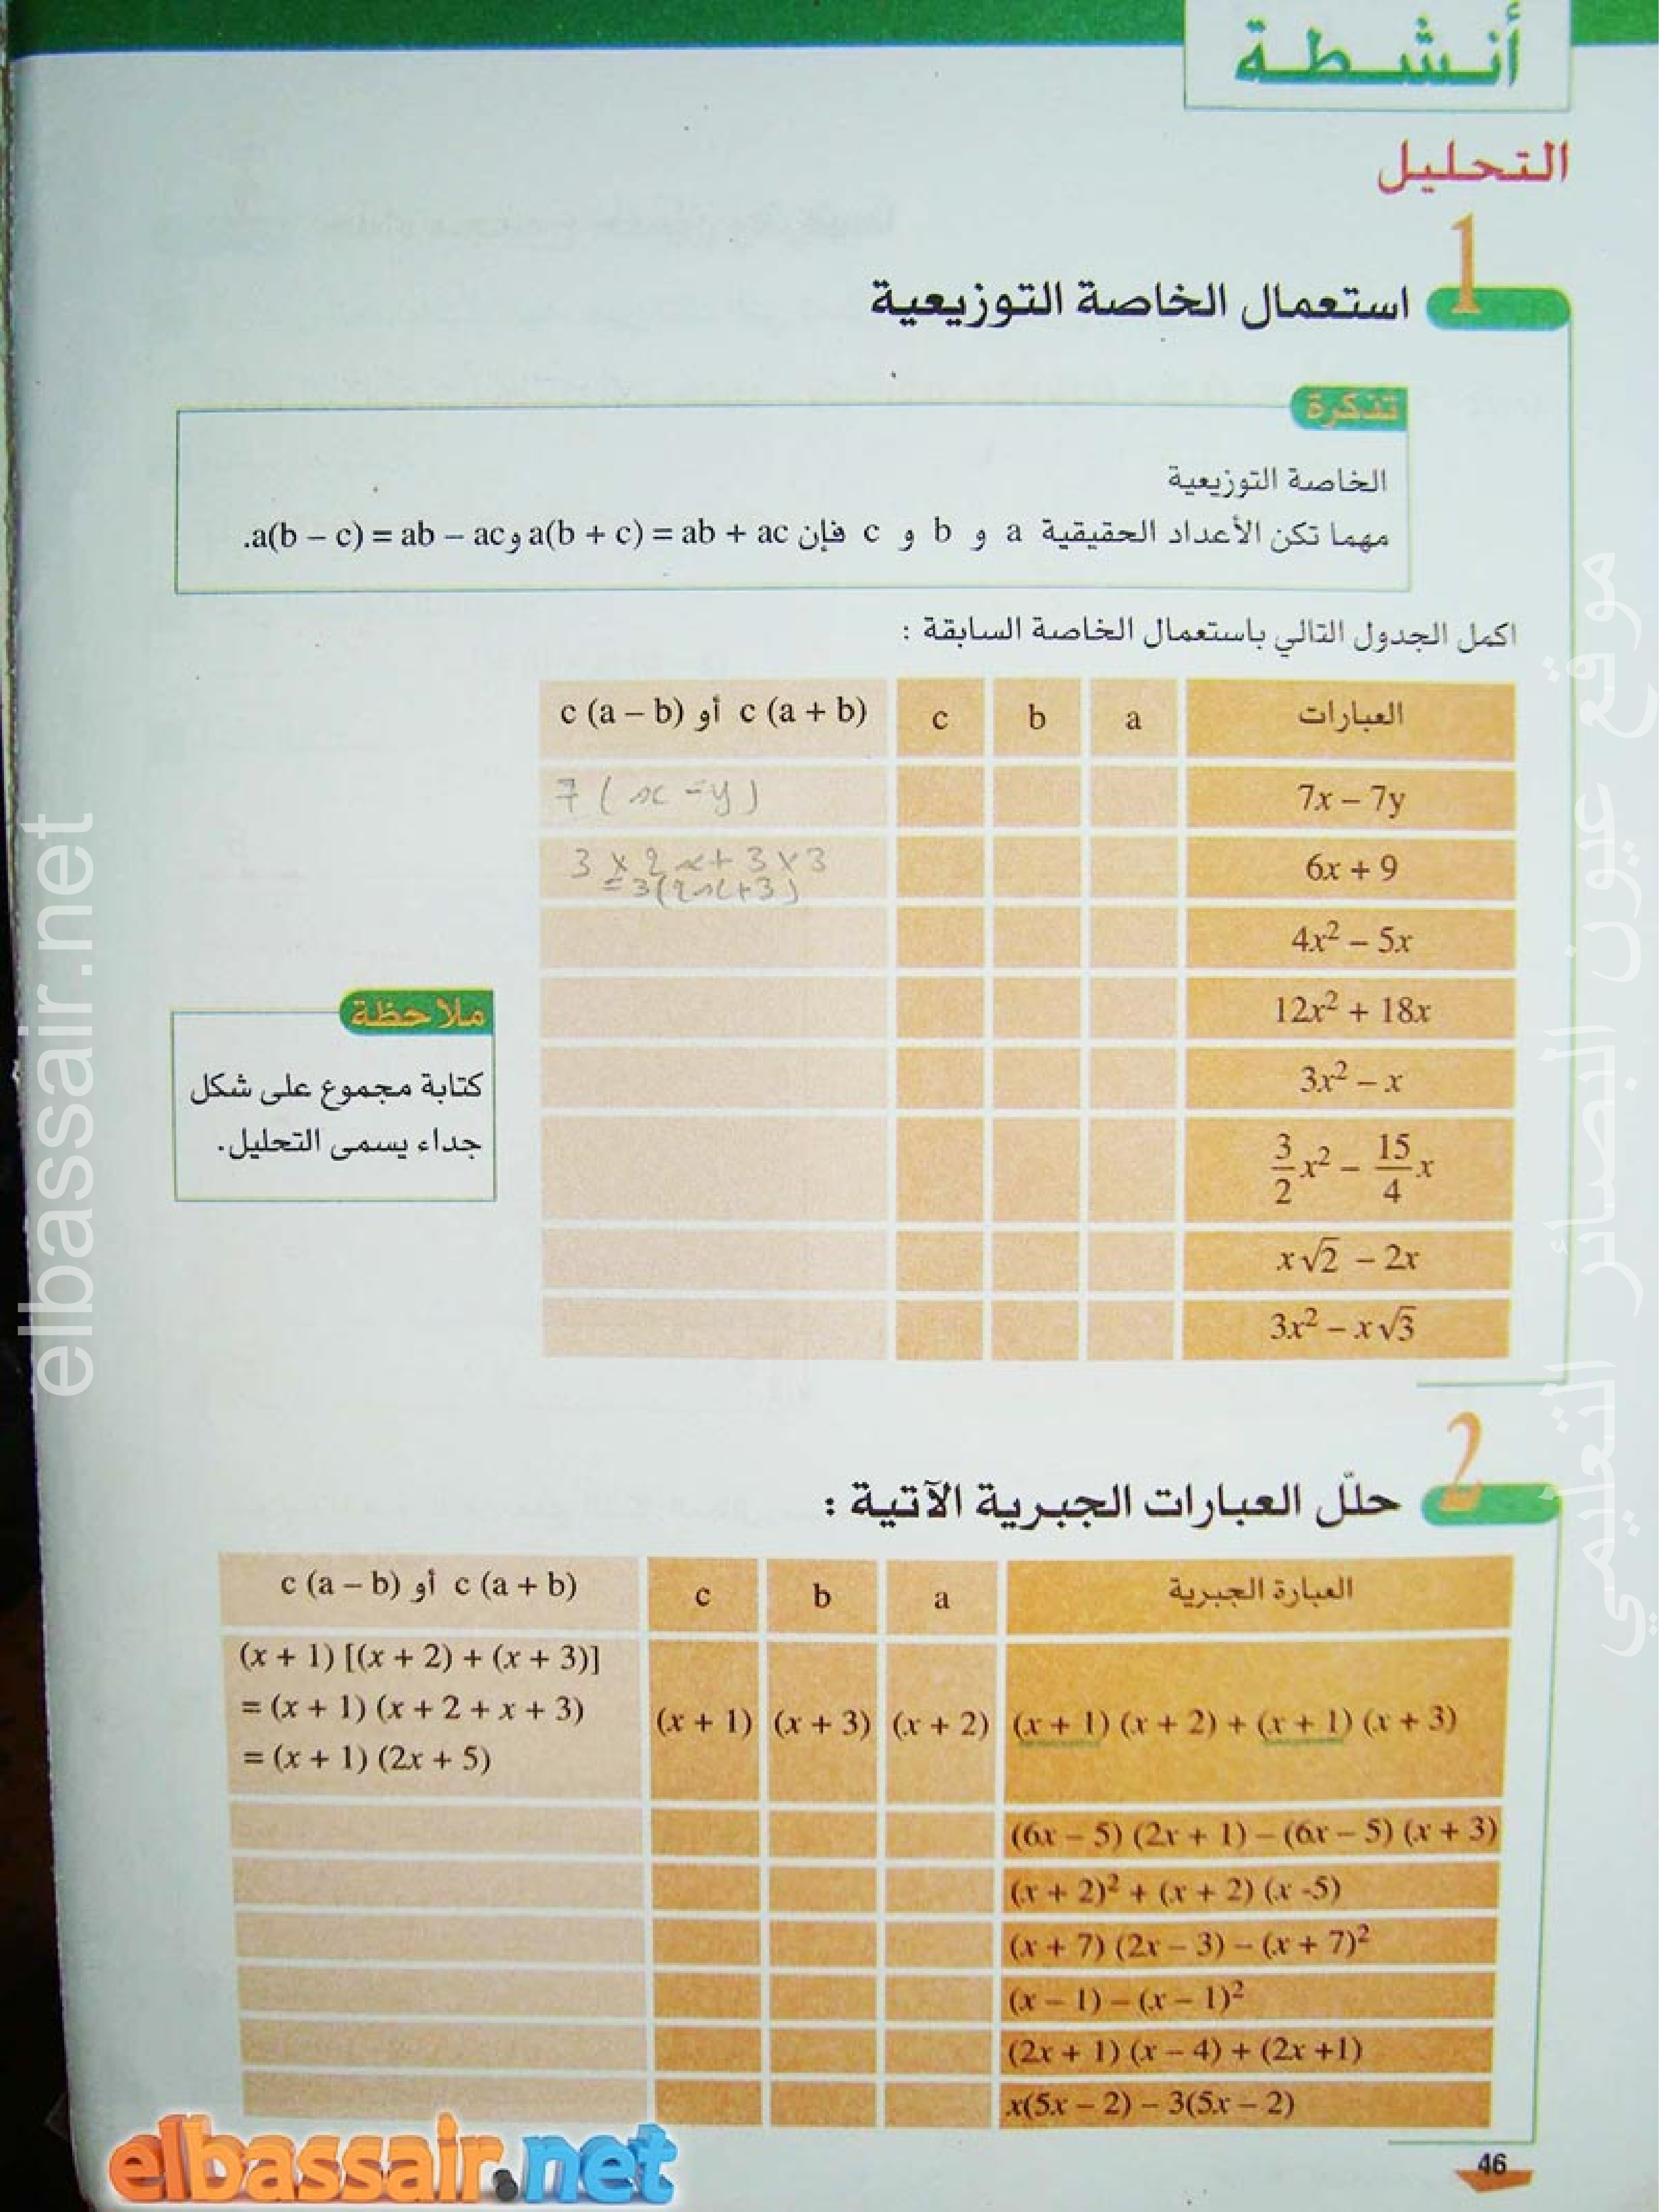 أنشطة
التحليل
1
استعمال الخاصة التوزيعية
تذكرة
الخاصة التوزيعية
مهما تكن الأعداد الحقيقية a و b و c فإن a(b + c) = ab + ac و a(b – c) = ab – ac.
اكمل الجدول التالي باستعمال الخاصة السابقة :
العبارات a b c c (a + b) أو c (a – b)
7x – 7y 7 ( x - y )
6x + 9 3 x 2 x + 3 x 3
= 3(2x+3)
4x² – 5x
12x² + 18x
3x² – x
3/2 x² – 15/4 x
x√2 – 2x
3x² – x√3
ملاحظة
كتابة مجموع على شكل
جداء يسمى التحليل.
2
حلّل العبارات الجبرية الآتية :
العبارة الجبرية a b c c (a + b) أو c (a – b)
(x + 1) (x + 2) + (x + 1) (x + 3) (x + 2) (x + 3) (x + 1) (x + 1) [(x + 2) + (x + 3)]
= (x + 1) (x + 2 + x + 3)
= (x + 1) (2x + 5)
(6x – 5) (2x + 1) – (6x – 5) (x + 3)
(x + 2)² + (x + 2) (x -5)
(x + 7) (2x – 3) – (x + 7)²
(x – 1) – (x – 1)²
(2x + 1) (x – 4) + (2x +1)
x(5x – 2) – 3(5x – 2)
46
elbassair.net
elbassair.net
موقع عيون البصائر التعليمي